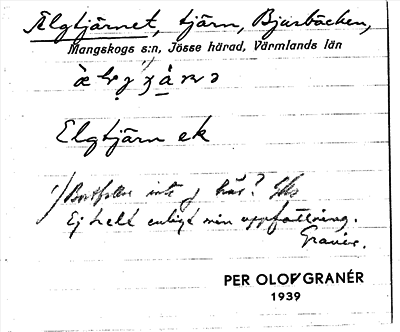 Älgtjärnet, tjärn, Bjursbäcken,
Mangskogs s:n, Jösse härad, Värmlands län
Elgtjärn ek
1) Bortfaller inte g här?
Ej helt enligt min uppfattning.
Granér.
PER OLOF GRANÉR
1939